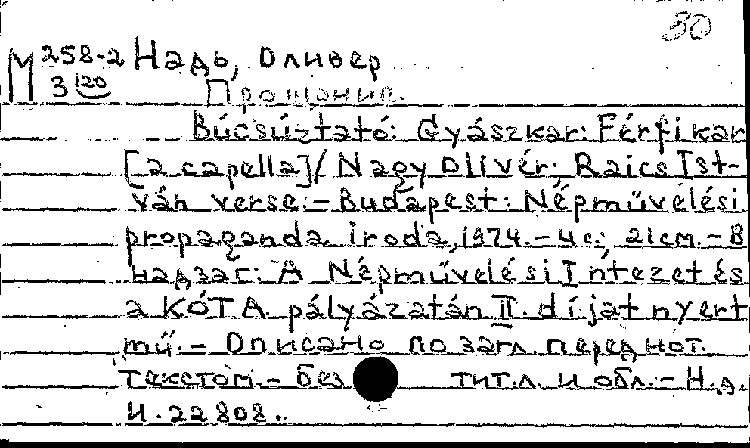 30
М 258-2 Надь, Оливер
3/20 Прощание.
Búcsúztató: Gyászkar: Férfikar
[a capella]/ Nagy Olivér; Raics Ist-
ván verse.- Budapest: Népművelési
propaganda iroda, 1974.- 4 с.; 21 см.- В
надзаг: A Népművelési Intézet és
a KÓTA pályázatán II. díjat nyert
mű.- Описано по загл. перед нот.
текстом.- без тит.л. и обл.- Н.д.
И.22808.